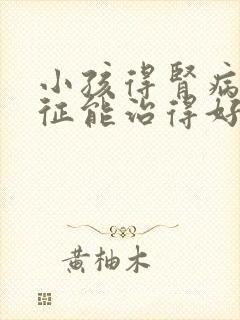 小孩得肾病
征能治得好
黄柚木